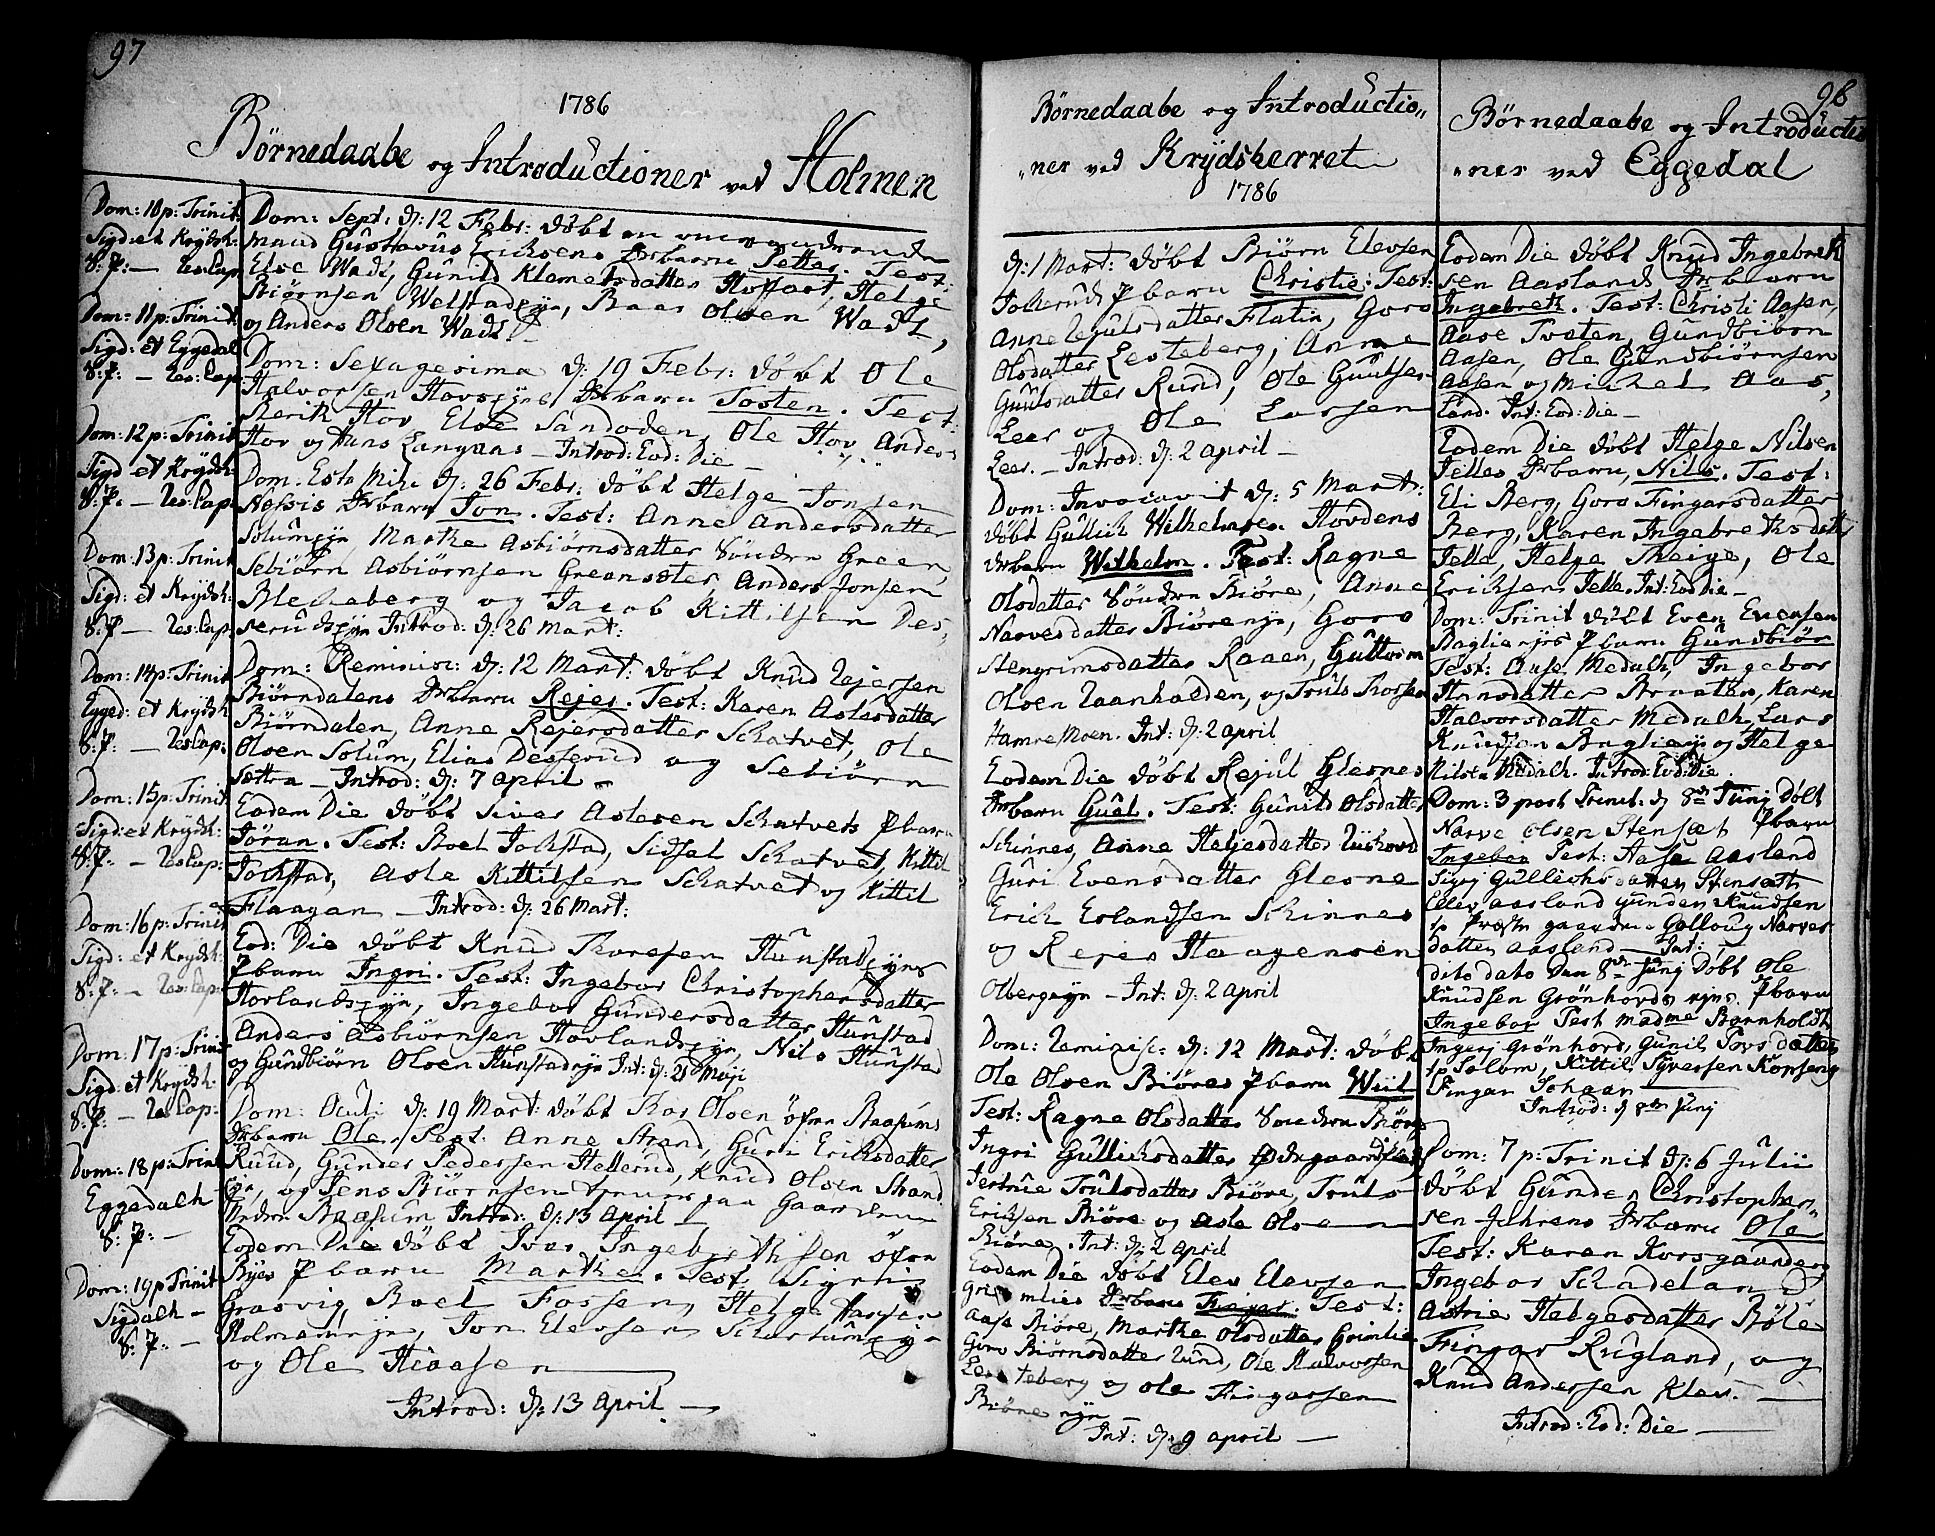 97
1786
Börnedaabe og Introductioner ved Holmen
Dom: 10 p: Trinit:
Sigd: et Krydsh:
S: P: — Res: Cap:
Dom: 11 p: Trinit:
Sigd: et Eggedal
S: P: — Res: Cap:
Dom: 12 p: Trinit:
Sigd et Krydsh:
S: P. — Res: Cap:
Dom: 13 p: Trinit
Sigd: et Krydsh:
S: P — Res: Cap:
Dom: 14 p: Trinit
Egged: et Krydsh:
S: P: — Res: Cap:
Dom: 15 p: Trinit
Sigd: et Krydsh:
S: P: — Res: Cap:
Dom: 16 p: Trinit
Sigd: et Krydsh:
S: P. — Res: Cap:
Dom: 17 p: Trinit
Sigd: et Krydsh:
S: P: — Res Cap:
Dom: 18 p: Trinit
Eggedalh
S: P: —
Dom: 19 p Trinit
Sigdalh —
S: P: —
Dom: Sept: d: 12 Febr: döbt en
mand Gustavus Ericksens barn Petter. Test:
Else Wadt, Gunild Klemetsdatter Hoffart, Helge
Biørnsen Welstadejn, Baar Olsen Wadt,
og Anders Olsen Wadt —
Dom: Sexagesima d: 19 Febr: döbt Ole
Halvorsen Hovsejns barn Tosten. Test:
Berit Hov, Else Sandoden, Ole Hov Anders
Hov og Hans Langaas — Introd: Eod: Die —
Dom: Esto Mihi d: 26 Febr: döbt Helge Jonsen
barn Jon. Test: Anne Andersdatter
Solumejn, Marthe Asbiörnsdatter Söndre Green,
Sebiörn Asbiörnsen Anders Jonsen
Blekeberg og Jacob Kittilsen Des,
serudsejn Introd: d: 26 Mart:
Dom: Reminisc: d: 12 Mart: döbt Knud Rejersen
Biörndalens barn Rejer. Test: Karen Aslesdatter
Biörndalen, Anne Rejersdatter Schatvet, Ole
Olsen Solum, Elias Desserud og Sebiörn
Sættra — Introd: d: 7 April —
Eodem Die döbt Siver Aslesen Schatvets P barn
Jöran. Test: Boel Jochstad, Sidsel Schatvet, Kittil
Jochstad, Asle Kittilsen Schatvet og Kittil
Flaagan — Introd: d: 26 Mart:
Eod: Die döbt Knud Thoresen Hunstadejns
P barn Ingri. Test: Ingebor Christophersdatter
Hovlandsejn, Ingebor Gundersdatter Hunstad
Anders Asbiörnsen Hovlandsejn, Nils Hunstad
og Gundbiörn Olsen Hunstadejn Int: d: 21 Maji
Dom: Oculi d: 19 Mart: döbt Thor Olsen öfre Braasums
barn Ole. Test: Anne Strand, Guri Ericksdatter
Ruud, Gunder Pedersen Hellerud, Knud Olsen Strand
og Jens Biörnsen paa Gaarden
Nedre Braasum Introd: d: 13 April —
Eodem Die döbt Iver Ingebrethsen öfre
Byes P barn Marthe. Test Sigri
Grasvig, Boel Fossen, Helge
Holmanejn, Jon Elevsen
og Ole Hiaasen
Introd: d: 13 April —
Börnedaabe og Introductio,,
,,ner ved Krydsherret
1786
d: 1 Mart: döbt Biörn Elevsen
P barn Christie: Test:
Anne Rejulsdatter Flatin, Goro
Olsdatter Lesteberg, Anne
Guulsdatter Rund, Ole Guulsen
Leer og Ole Larsen
Leer. — Introd: d: 2 April —
Dom: Invocavit d: 5 Mart:
döbt Gullich Wilhelmsen Hovdens
barn Wilhelm. Test: Ragne
Olsdatter Söndre Biöre, Anne
Narvesdatter Biörenejn, Goro
Stengrimsdatter Raaen, Guttorm
Olsen Raanholden, og Truls Thorsen
Hamremoen. Int: d: 2 April
Eodem Die döbt Rejul Glesnes
barn Guul. Test: Gunild Olsdatter
Schinnes, Anne Helgesdatter
Guri Evensdatter Glesne
Erich Erlandsen Schinnes
og Rejer Haagensen
Olbergejn — Int: d: 2 April
Dom: Reminisc: d: 12 Mart: döbt
Ole Olsen Biöres P barn
Test: Ragne Olsdatter Söndre Biöre
Ingri Gullichsdatter
Trulsdatter Biöre, Truls
Ericksen Biöre og Asle Olsen
Biöre. Int: d: 2 April
Eodem Die döbt Elev Elevsen
Grimlies barn Fingar. Test:
Aase Biöre, Marthe Olsdatter Grimlie
Goro Biörnsdatter Rund, Ole Halvorsen
Lesteberg og Ole Fingarsen
Biörenejn —
Int: d: 9 April —
98
Börnedaabe og Introductio
,,ner ved Eggedal
Eodem Die döbt Knud Ingebreth
sen Aaslands barn
Ingebreth. Test: Christi Aasen,
Aase Tveten, Gundbiörn
Aasen, Ole Gundbiörnsen
Aasen og Michel Aas,
land. Int: Eod: Die —
Eodem Die döbt Helge Nilsen
Jelles barn, Nils. Test:
Eli Berg, Goro Fingarsdatter
Berg, Karen Ingebrethsdatter
Jelle, Helge Theige, Ole
Ericksen Jelle. Int: Eod Die —
Dom: Trinit döbt Even Evensen
P barn Gundbiör
Test: Aase Medalh, Ingebor
Hansdatter Braaten, Karen
Halvorsdatter Medalh, Lars
Knudsen og Helge
Nilsen Medalh. Introd: Eod: Die
Dom: 3 post Trinit: d 8de Junj Dölt
Narve Olsen Stensæt P barn
Ingebor Test: Aase Aasland
Sigrj Gullichsdatter Stensæth
Ellev Aasland Gunder Knudsen
Præste gaarden Gollaug Narves
datter Aasland — Int:
dito dato Den 8de Junj Döbt Ole
Knudsen Grönhovds ejns P barn
Ingebor Test Madme Barnholdt
Ingerj Grönhovd, Gunil Torsdatter
Solom, Kittil Syversen Kopseng
Fingar Johaar
Introd: d 8de Junj
Dom: 7 p: Trinit d: 6 Julii
döbt Gunder Christopher,,
sen Juhrens barn Ole
Test: Karen Korsgaarden
Ingebor Schadeland
Astrie Helgesdatter Böle
Fingar Rugland, og
Knud Andersen Klev. —
Introd: Eod: Die —